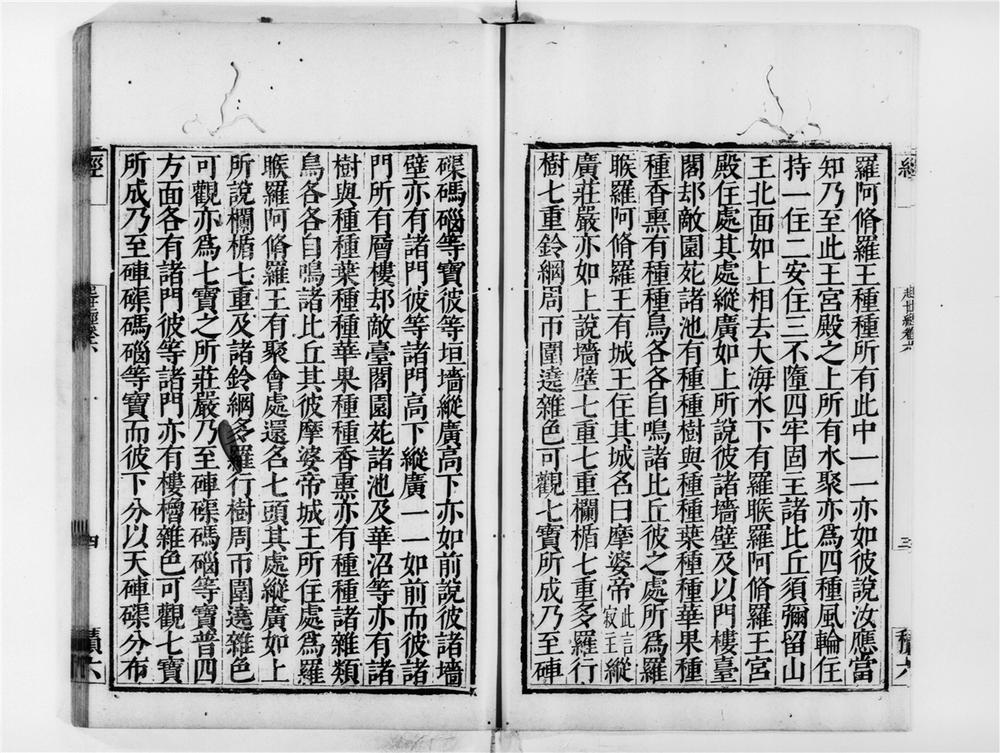 羅阿脩羅王種種所有此中一一亦如彼說汝應當
知乃至此王宮殿之上所有水聚亦為四種風輪住
持一住二安住三不墮四牢固王諸比丘須彌留山
王北面如上相去大海水下有羅睺羅阿脩羅王宮
殿住處其處縱廣如上所說彼諸墻壁及以門樓臺
閣却敵園苑諸池有種種樹與種種葉種種華果種
種香熏有種種鳥各各自鳴諸比丘彼之處所為羅
睺羅阿脩羅王有城王住其城名曰摩婆帝此言寂主縱
廣莊嚴亦如上說墻壁七重七重欄楯七重多羅行
樹七重鈴網周帀圍遶雜色可觀七寶所成乃至硨
磲碼碯等寶彼等垣墻縱廣高下亦如前說彼諸墻
壁亦有諸門彼等諸門高下縱廣一一如前而彼諸
門所有層樓却敵臺閣園苑諸池及華沼等亦有諸
樹與種種葉種種華果種種香熏亦有種種諸雜類
鳥各各自鳴諸比丘其彼摩婆帝城王所住處為羅
睺羅阿脩羅王有聚會處還名七頭其處縱廣如上
所說欄楯七重及諸鈴網多羅行樹周帀圍遶雜色
可觀亦為七寶之所莊嚴乃至硨磲碼碯等寶普四
方面各有諸門彼等諸門亦有樓櫓雜色可觀七寶
所成乃至硨磲碼碯等寶而彼下分以天硨磲分布
經
起世經卷六
三
積六
經
起世經卷六
四
積六